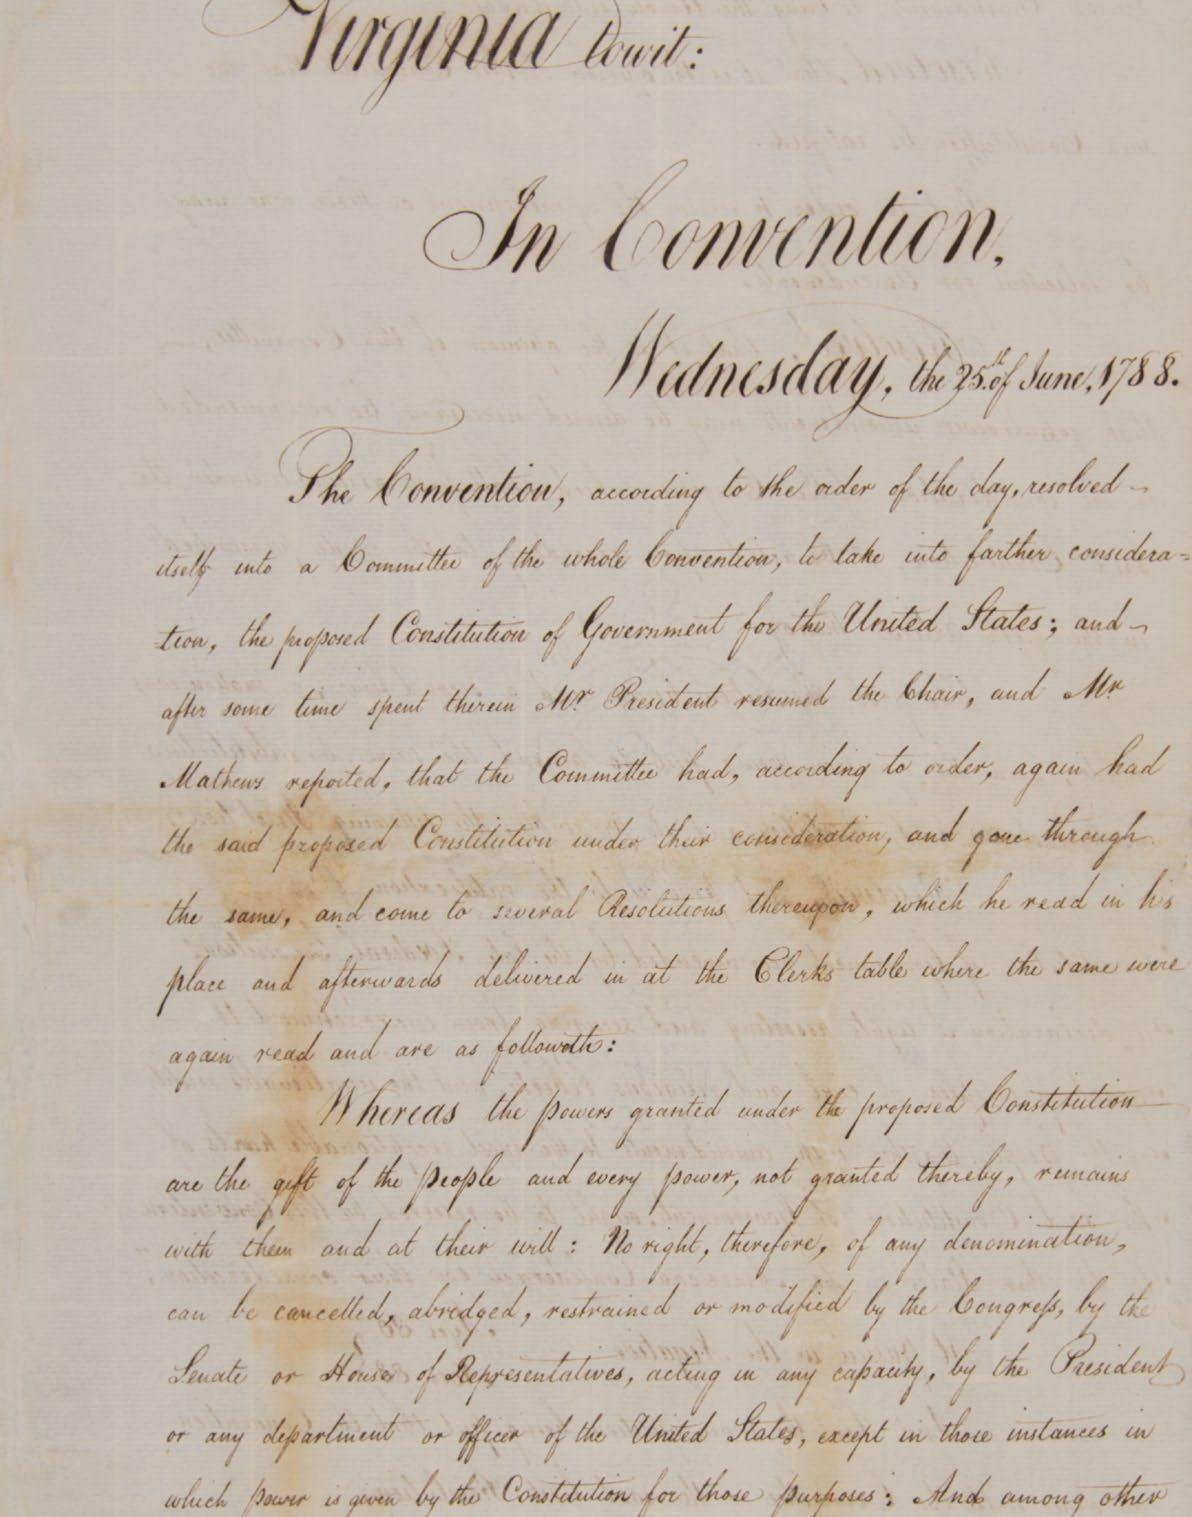 Virginia towit:
In Convention,
Wednesday, the 25.th of June, 1788.
The Convention, according to the order of the day, resolved
itself into a Committee of the whole Convention, to take into farther considera=
=tion, the proposed Constitution of Government for the United States; and
after some time spent therein Mr President resumed the Chair, and Mr
Mathews reported, that the Committee had, according to order, again had
the said proposed Constitution under their consideration, and gone through
the same, and come to several Resolutions thereupon, which he read in his
place and afterwards delivered in at the Clerks table where the same were
again read and are as followeth:
Whereas the powers granted under the proposed Constitution
are the gift of the people and every power, not granted thereby, remains
with them and at their will: No right, therefore, of any denomination,
can be cancelled, abridged, restrained or modified by the Congress, by the
Senate or House of Representatives, acting in any capacity, by the President
or any department or officer of the United States, except in those instances in
which power is given by the Constitution for those purposes: And among other